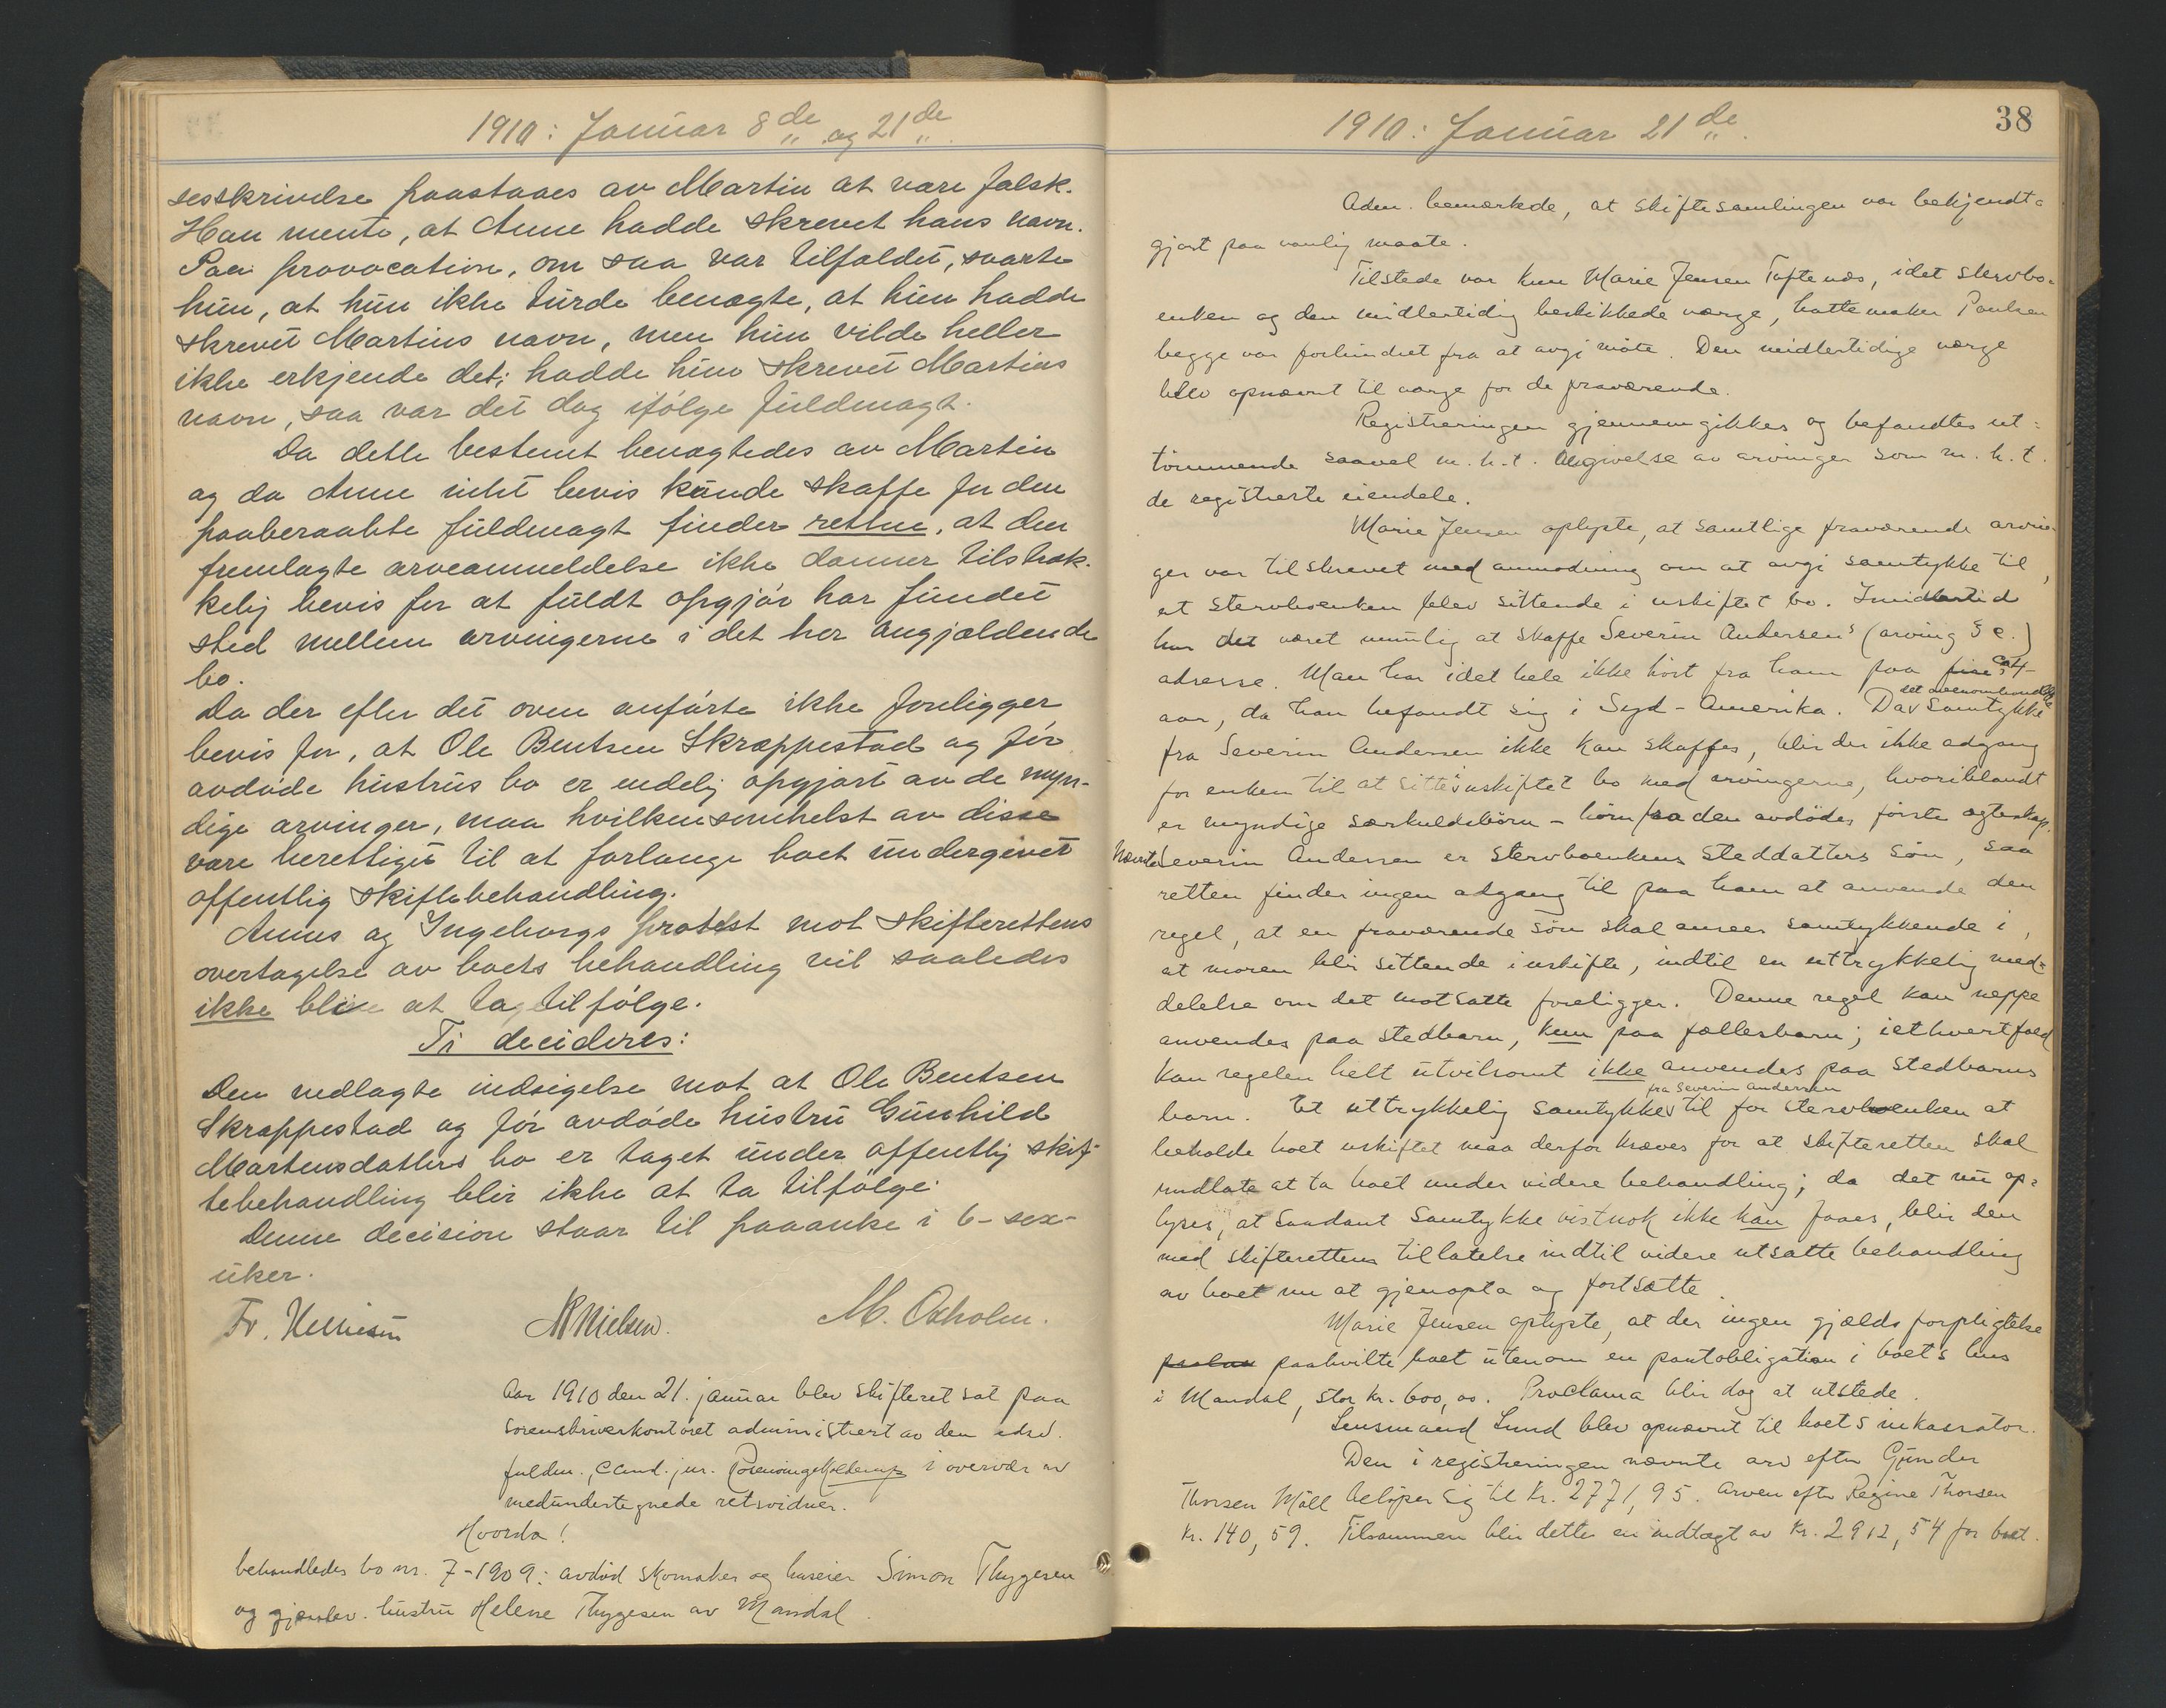 1910: Januar 8de og 21de
sesskrivelse paastaaes av Martin at være falsk.
Han mente, at Anne hadde skrevet hans navn.
Paa provocation, om saa var tilfældet, svarte
hun, at hun ikke turde benægte, at hun hadde
skrevet Martins navn, men hun vilde heller
ikke erkjende det; hadde hun skrevet Martins
navn, saa var det dog ifølge fuldmagt.
Da dette bestemt benægtedes av Martin
og da Anne intet bevis kunde skaffe for den
paaberaabte fuldmagt finder retten, at den
fremlagte arveanmeldelse ikke danner tilstræk-
kelig bevis for at fuldt opgjør har fundet
sted mellem arvingerne i det her angjældende
bo.
Da der efter det oven anførte ikke foreligger
bevis for, at Ole Bentsen Skræppestad og før
avdøde hustrus bo er endelig opgjort av de myn-
dige arvinger, maa hvilkensomhelst av disse
være berettiget til at forlange boet undergivet
offentlig skiftebehandling.
Annes og Ingeborgs protest mot skifterettens
overtagelse av boets behandling vil saaledes
ikke blive at ta tilfølge.
Ti decideres:
Den nedlagte indsigelse mot at Ole Bentsen
Skræppestad og før avdøde hustru Gunhild
Martensdatters bo er taget under offentlig skif-
tebehandling blir ikke at ta tilfølge.
Denne decision staar til paaanke i 6-sex-
uker.
Fr. NPNielsen. M. Oxholm.
Aar 1910 den 21. januar blev skifteret sat paa
sorenskriverkontoret administrert av den edsv.
fuldm., cand. jur. i overvær av
medundertegnede retsvidner.
Hvorda!
behandledes bo nr. 7-1909: avdød skomaker og huseier Simon Thygesen
og gjenlev. hustru Helene Thygesen av Mandal.
1910: Januar 21de.
38
Adm. bemærkde, at skiftesamlingen var bekjendt=
gjort paa vanlig maate.
Tilstede var kun Marie Jensen Toftenes, idet stervbo-
enken og den midlertidig beskikkede værge, hattemaker Paulsen
begge var forhindret fra at avgi møte. Den midlertidige værge
blev opnævnt til værge for de fraværende.
Registreringen gjennemgikkes og befandtes ut=
tømmende saavel m.h.t. angivelse av arvinger som m.h.t.
de registrerte eiendele.
Marie Jensen oplyste, at samtlige fraværende arvin-
ger var tilskrevet med anmodning om at avgi samtykke til,
at stervboenken blev sittende i uskiftet bo. Imidlertid
har det været umulig at skaffe Severin Andersens (arving 3 e.)
adresse. Man har idet hele ikke hørt fra ham paa ca 4
aar, da han befandt sig i Syd-Amerika. Da det ovenomhandlede samtykke
fra Severin Andersen ikke kan skaffes, blir der ikke adgang
for enken til at sitte i uskiftet bo med arvingerne, hvoriblandt
er myndige særkuldsbørn – børn fra den avdødes første egteskap.
Nævnte Severin Andersen er stervboenkens steddatters søn, saa
retten finder ingen adgang til paa ham at anvende den
regel, at en fraværende søn skal ansees samtykkende i,
at moren blir sittende i uskifte, indtil en uttrykkelig med=
delelse om det motsatte foreligger. Denne regel kan neppe
anvendes paa stedbarn, kun paa fællesbarn; iethvertfald
kan regelen helt utvilsomt ikke anvendes paa stedbarns
barn. Et uttrykkelig samtykke fra Severin Andersen til for stervboenken at
beholde boet uskiftet maa derfor kræves for at skifteretten skal
undlate at ta boet under videre behandling; da det nu op=
lyses, at saadant samtykke vistnok ikke kan faaes, blir den
med skifterettens tillatelse indtil videre utsatte behandling
av boet nu at gjenopta og fortsætte.
Marie Jensen oplyste, at der ingen gjældsforpligtelse
paahvilte boet utenom en pantobligation i boets hus
i Mandal, stor kr. 600,00. Proclama blir dog at utstede.
Lensmand Lund blev opnævnt til boets inkassator.
Den i registreringen nævnte arv efter Gunder
Thorsen Møll beløper sig til kr. 2771,95. Arven efter Regine Thorsen
kr. 140,59. Tilsammen blir dette en indtægt av kr. 2912,54 for boet.